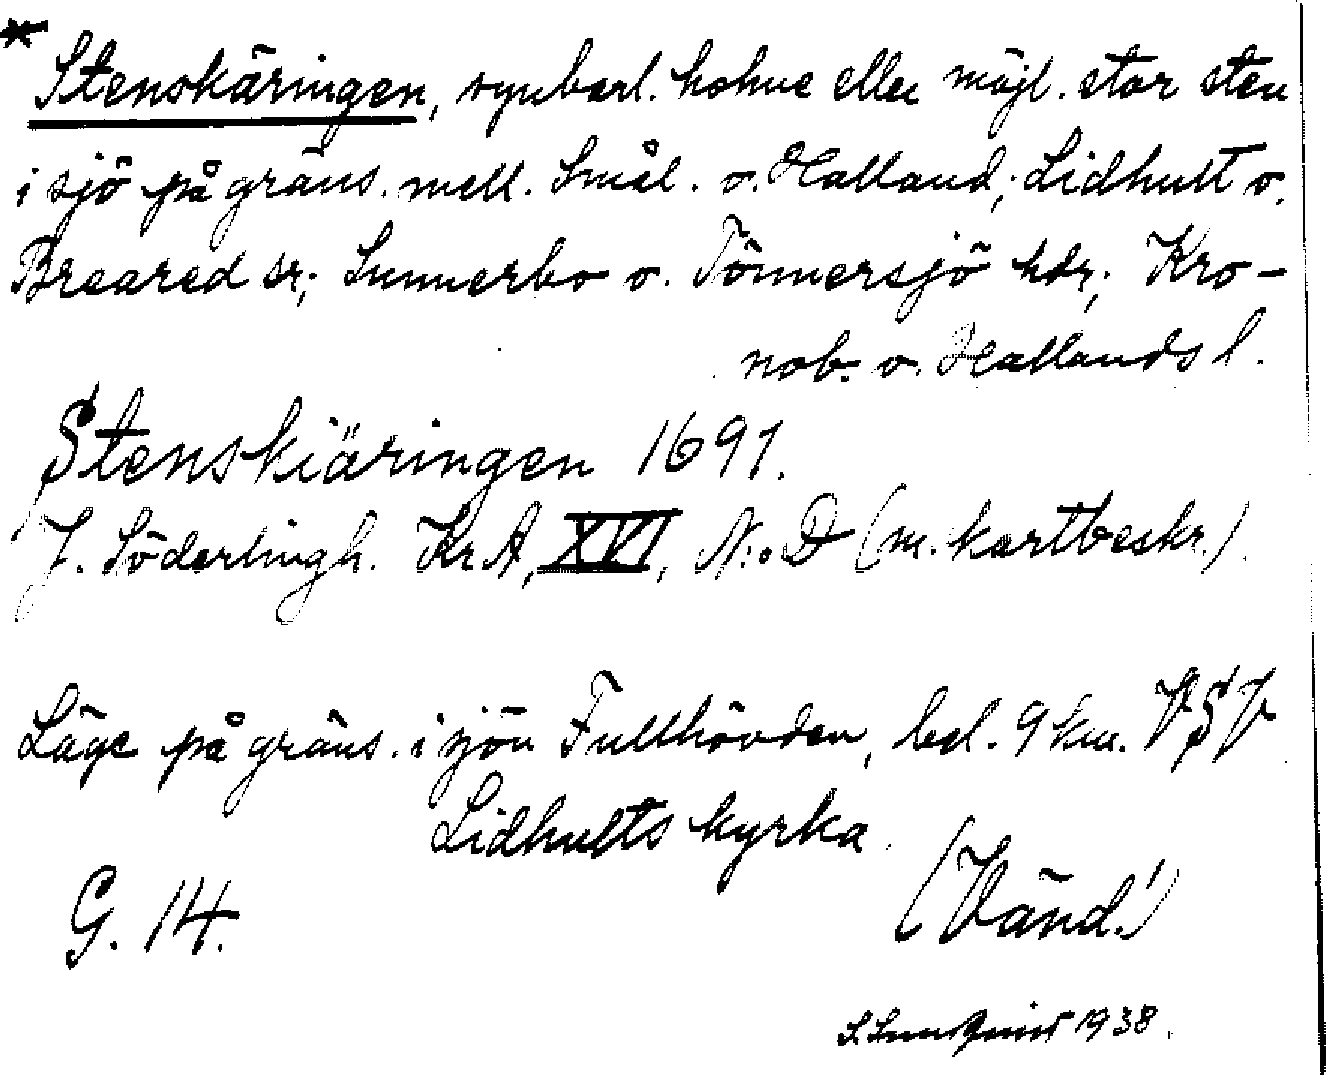 * Stenskäringen, synbarl. holme eller möjl. stor sten
i sjö på gräns. mell. Smål. o. Halland; Lidhult o.
Breared sr; Sunnerbo o. Tönnersjö hdr; Kro-
nob. o. Hallands l.
Stenskiäringen 1691.
J. Söderlingh. Kr A, XVI, N:o D (m. kartbeskr.).
Läge på gräns. i sjön Fullhövden, bel. 9 km. VSV
Lidhults kyrka.
G. 14.
(Vänd!)
1938.